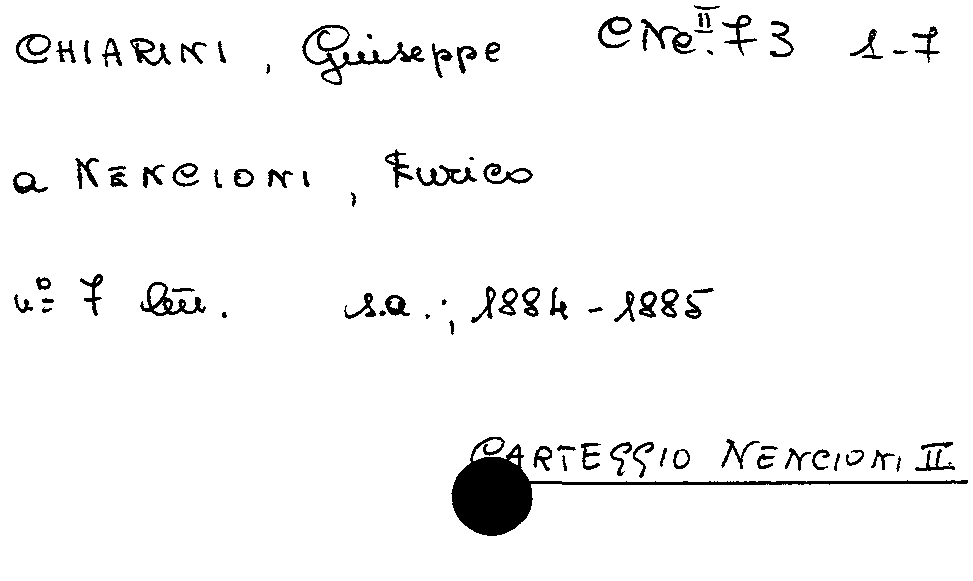 CHIARINI, Giuseppe CNe.II.73 1-7
a NENCIONI, Enrico
nº 7 lett. s.a.; 1884-1885
CARTEGGIO NENCIONI II.